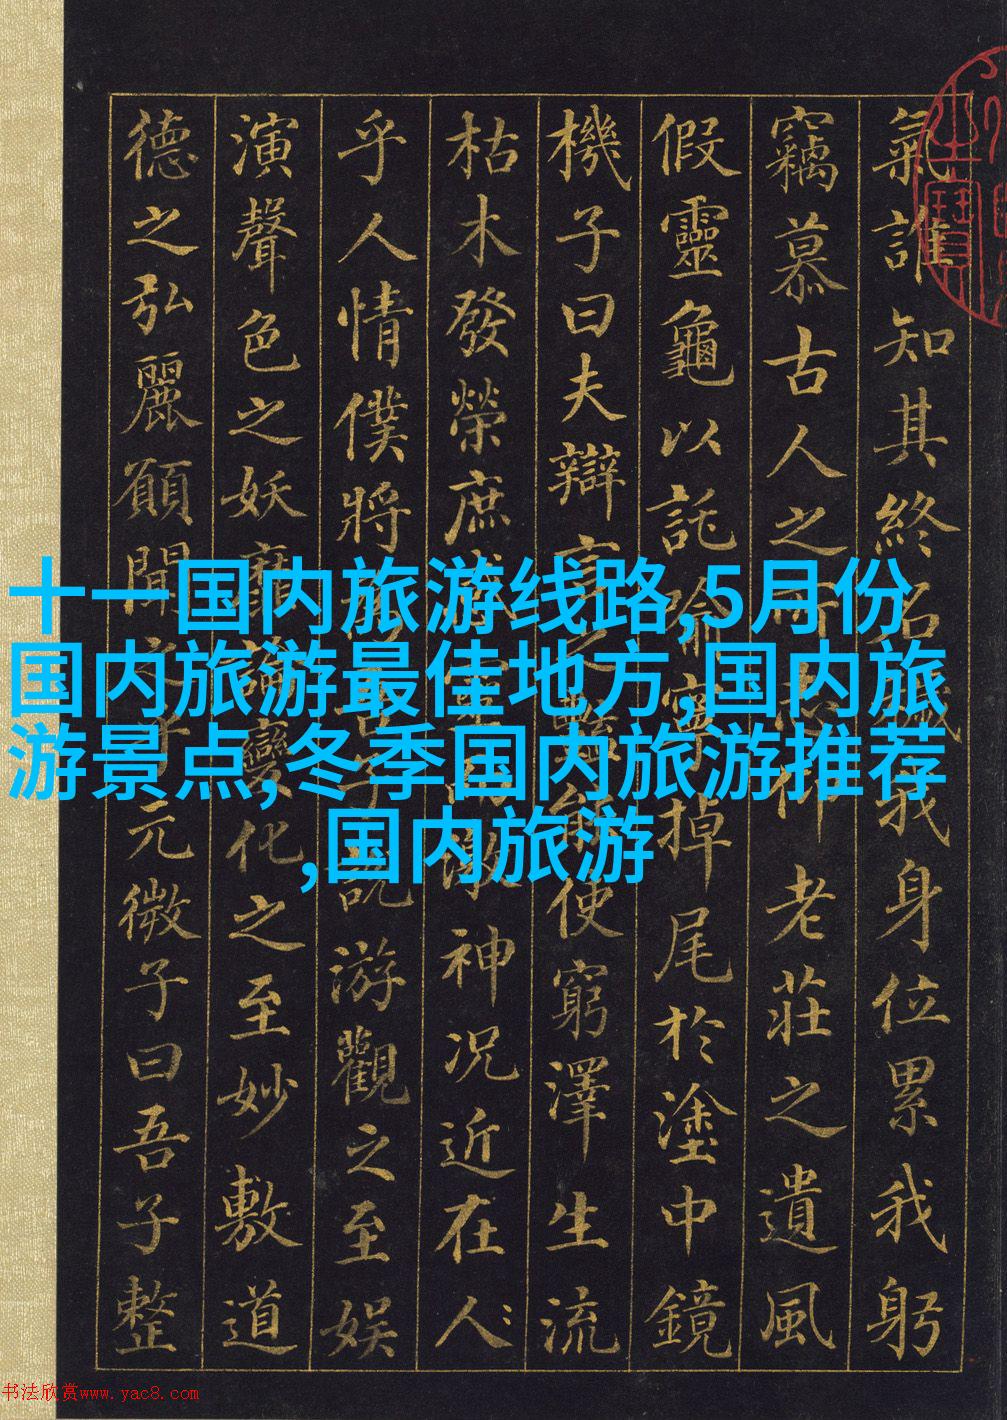 氣誰知其終名穢我身位累我躬
竊慕古人之所志仰老莊之遺風
假靈龜以託喻寧掉尾於塗中鏡
機子曰夫辯言之豔能使窮澤生流
枯木發榮庶感靈而激神況近在人
乎人情僕將為吾子說游觀之至娛
演聲色之妖靡論變化之至妙敷道
德之弘麗願聞之乎元微子曰吾子整
十一国内旅游线路,5月份
国内旅游最佳地方,国内旅
游景点,冬季国内旅游推荐
,国内旅游
书法欣赏www.yac8.com